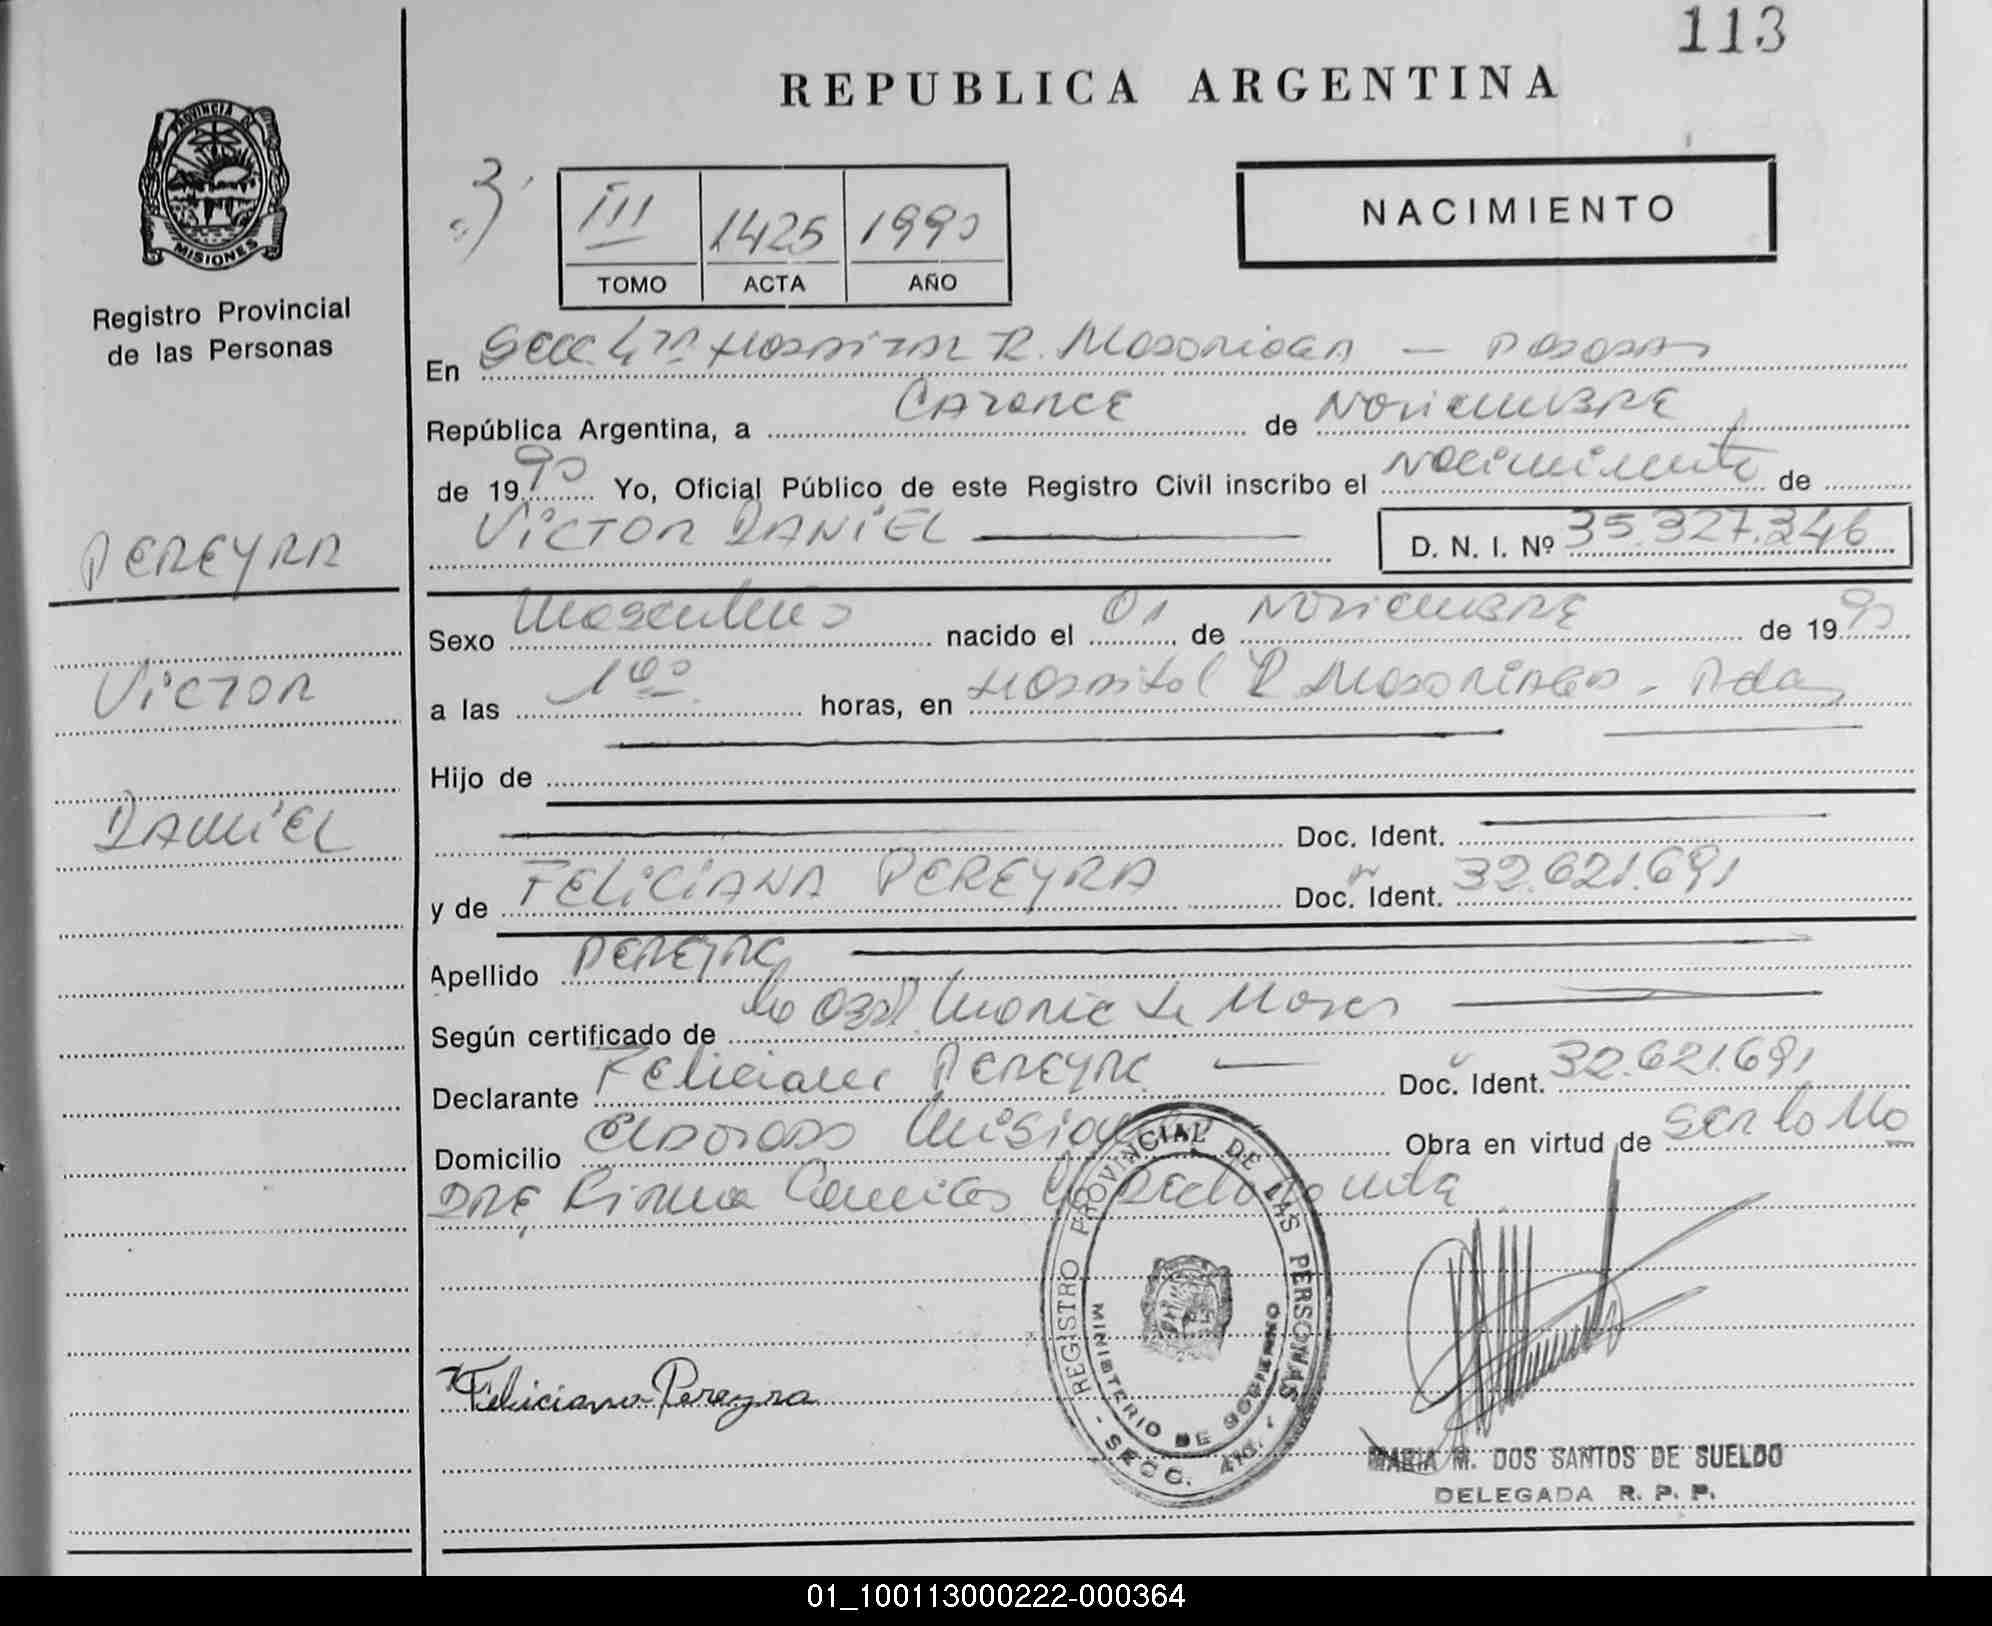 113
REPUBLICA ARGENTINA
PROVINCIA DE
MISIONES
Registro Provincial
de las Personas
III 1425 1990
TOMO ACTA AÑO
NACIMIENTO
En Secc 4ta Hospital R. Madariaga — Posadas
República Argentina, a Catorce de Noviembre
de 1990 Yo, Oficial Público de este Registro Civil inscribo el Nacimiento de
VICTOR DANIEL D. N. I. Nº 35.327.346
PEREYRA
VICTOR
DANIEL
Sexo Masculino nacido el 01 de Noviembre de 1990
a las 100 horas, en Hospital R Madariaga - Pdas
Hijo de
Doc. Ident.
y de FELICIANA PEREYRA Doc. Ident. 32.621.691
Apellido PEREYRA
Según certificado de la Obst. Maria
Declarante Feliciana PEREYRA Doc. Ident. 32.621.691
Domicilio Eldorado Misiones Obra en virtud de Ser la Ma
DRE, Firma
REGISTRO PROVINCIAL DE LAS PERSONAS
MINISTERIO DE GOBIERNO
- SECC. 4ta. -
Feliciana Pereyra
MARIA M. DOS SANTOS DE SUELDO
DELEGADA R. P. P.
01_100113000222-000364